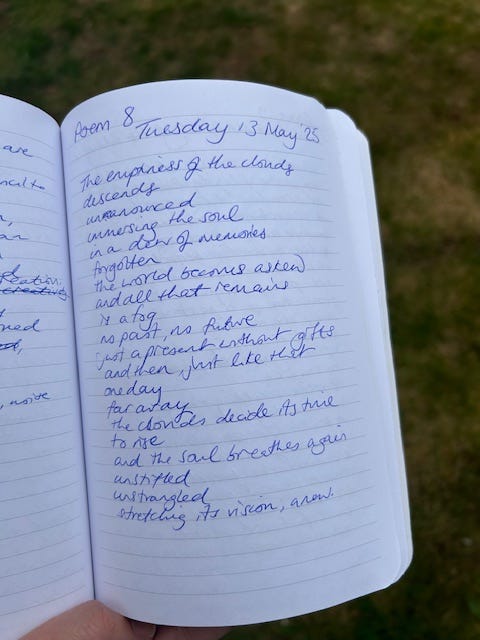 are
ncil to
n,
an
reations
creating
ned
, noise
Poem 8 Tuesday 13 May '25
The emptiness of the clouds
descends
unannounced
immersing the soul
in a dew of memories
forgotten
the world becomes askew
and all that remains
is a fog
no past, no future
just a present without gifts
and then, just like that
one day
far away
the clouds decide its time
to rise
and the soul breathes again
unstifled
unstrangled
stretching its vision, anew.